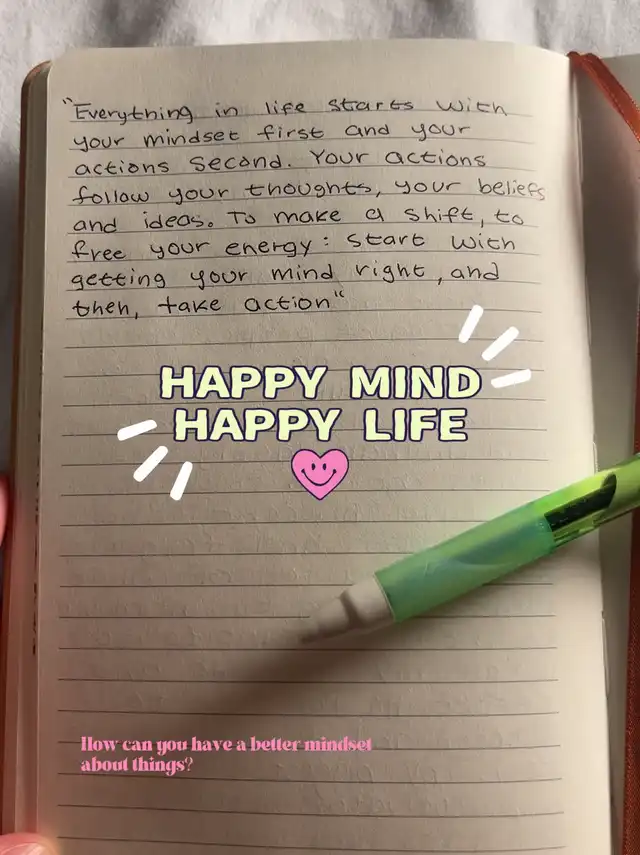 "Everything in life starts with
your mindset first and your
actions second. Your actions
follow your thoughts, your beliefs
and ideas. To make a shift, to
free your energy: start with
getting your mind right, and
then, take action"
HAPPY MIND
HAPPY LIFE
How can you have a better mindset
about things?